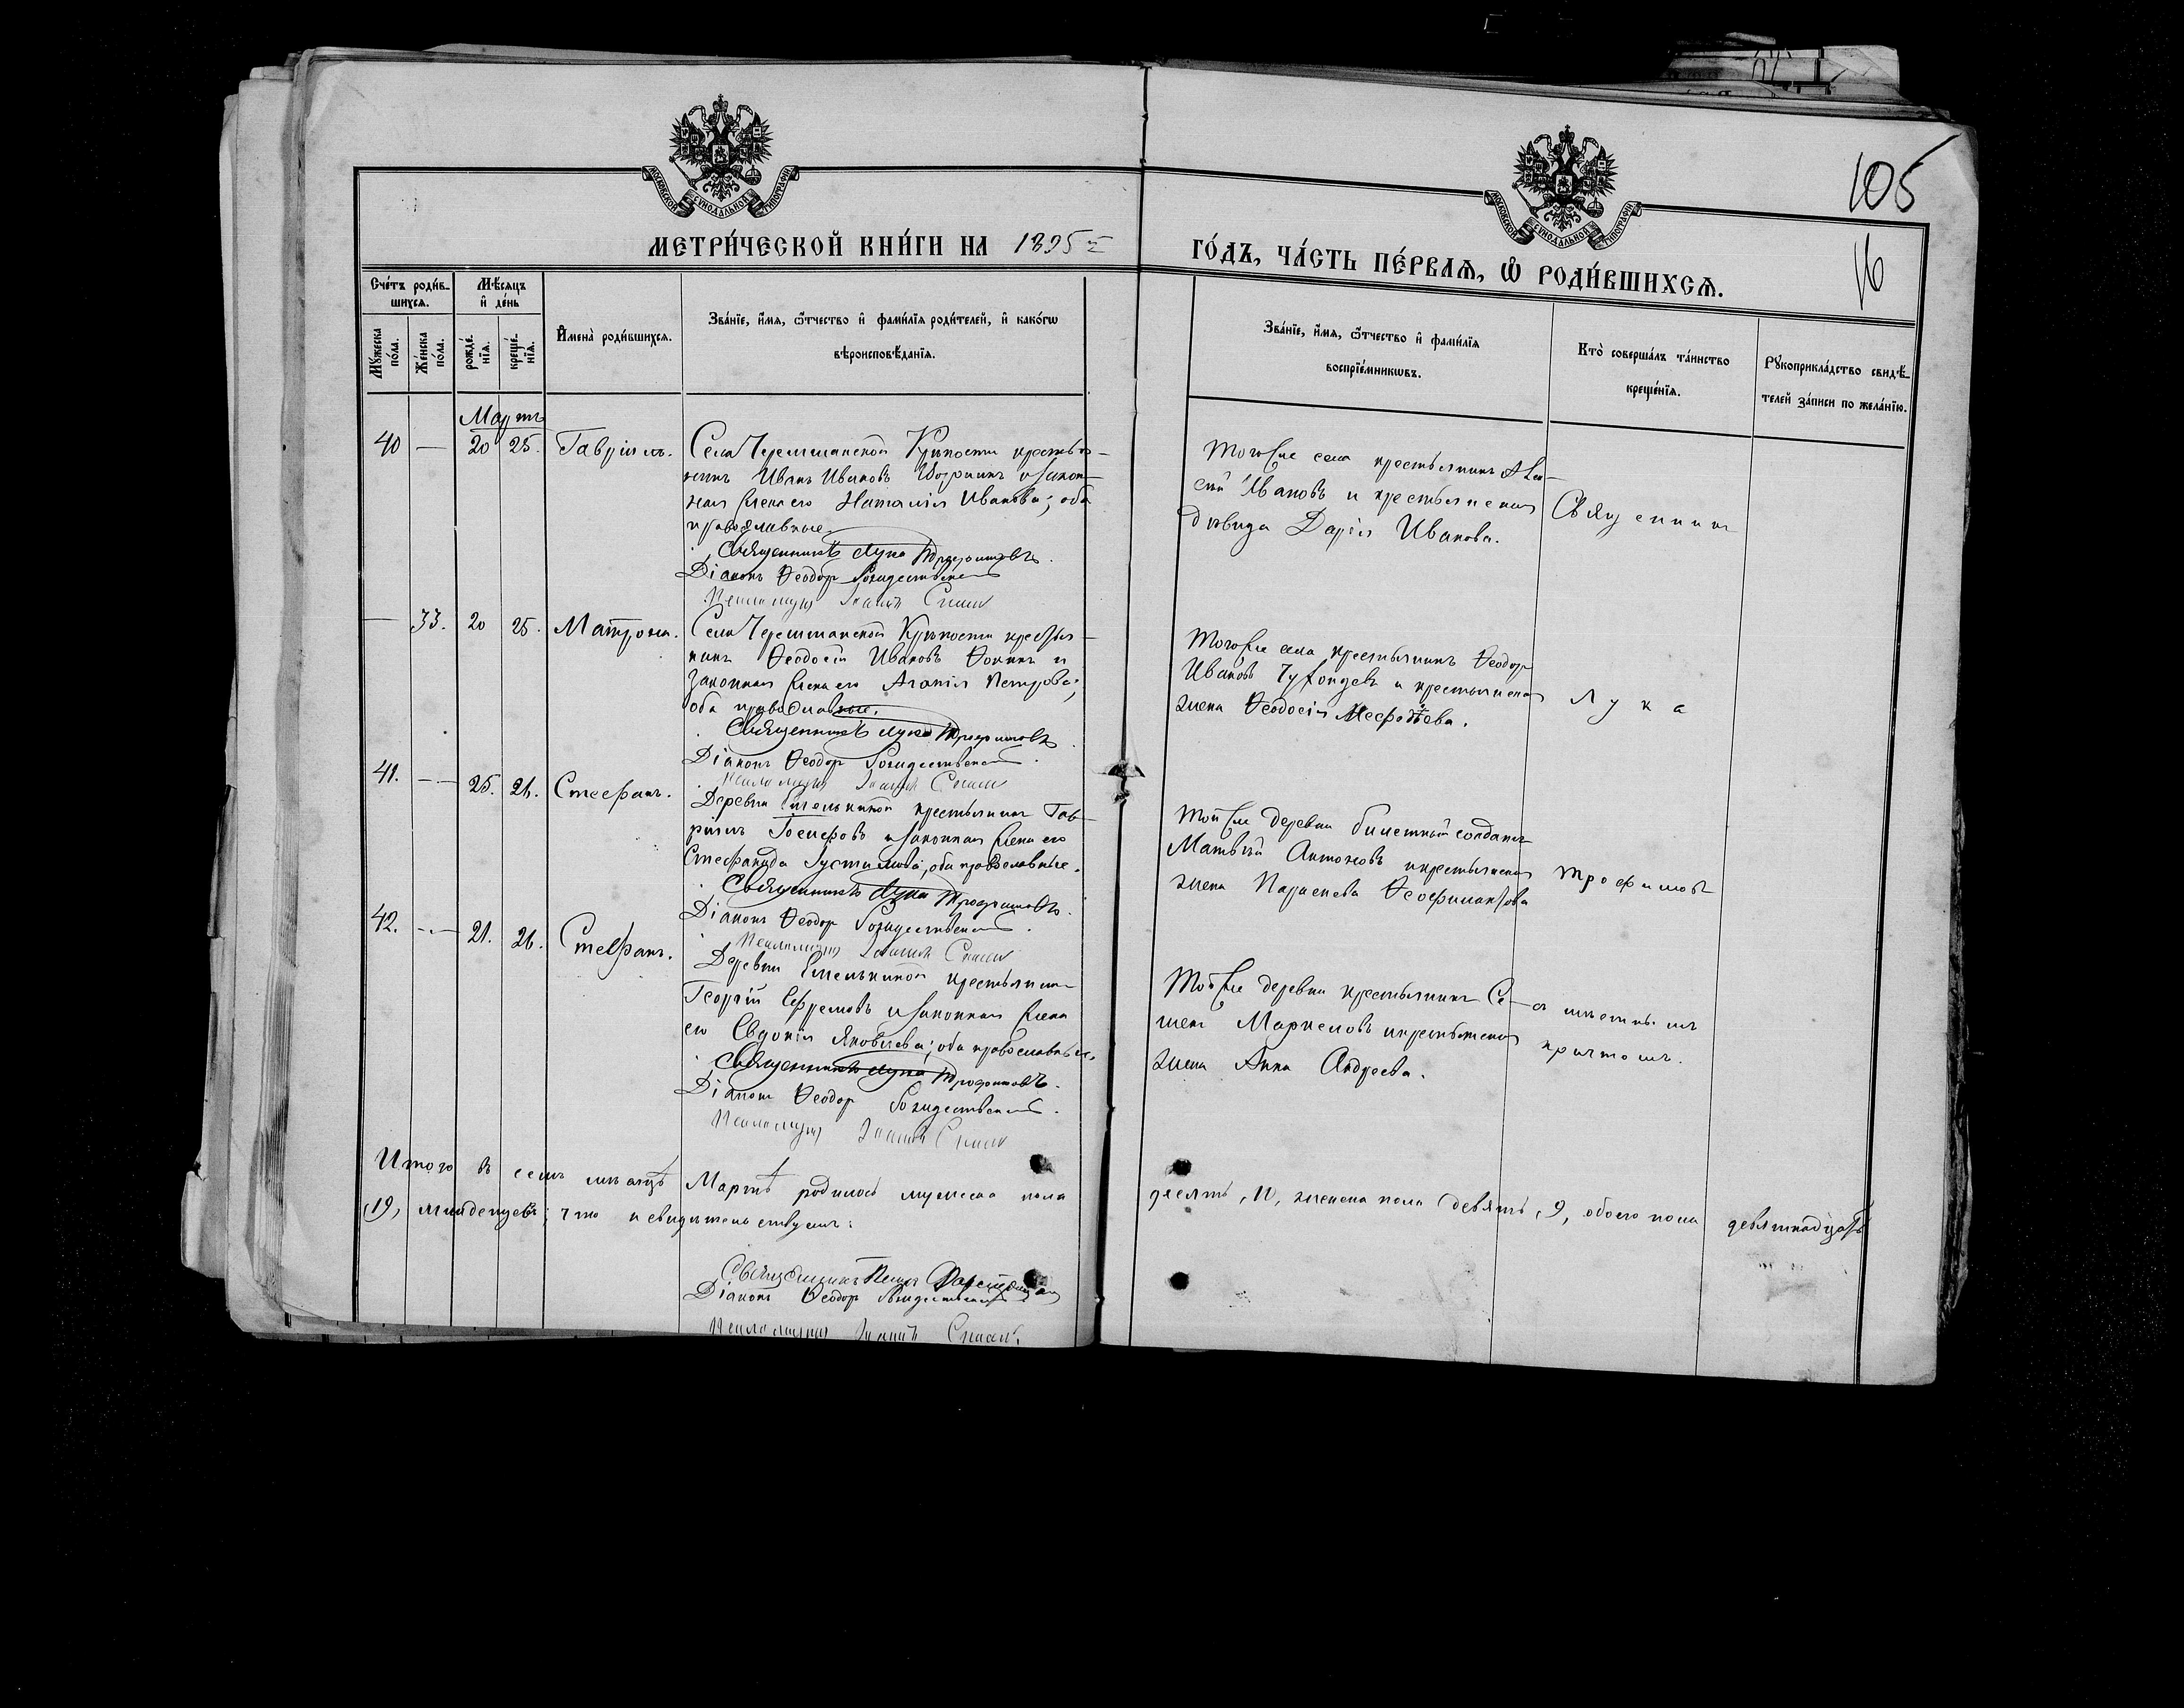 105
16
МЕТРИ́ЧЕСКОЙ КНИ́ГИ НА 1895 й
ГО́ДЪ, ЧА́СТЬ ПЕ́РВАѦ, Ѡ РОДИ́ВШИХСѦ.
Сче́тъ роди́в-
шихсѧ.
Мꙋжеска по́ла.
Же́нска по́ла.
Мѣ́сяцъ и де́нь
рожде́нїѧ.
креще́нїѧ.
Имена̀ роди́вшихсѧ.
Зва́нїе, и́мѧ, ѻ́тчество и фами́лїѧ роди́телей, и како́гѡ
вѣроисповѣ́данїѧ.
Зва́нїе, и́мѧ, ѻ́тчество и фами́лїѧ
воспрїе́мникѡвъ.
Кто̀ соверша́лъ та́инство
креще́нїѧ.
Рꙋкоприкла́дство свидѣ́-
телей за́писи по жела́нїю.
Мартъ
40 — 20 25. Гавріилъ.
Села Черемшанской Крѣпости крестья-
нинъ Иванъ Ивановъ и закон-
ная жена его Наталія Иванова; оба
православные.
Священникъ Лука Трофимовъ.
Діаконъ Ѳеодоръ Рождественскій
Псаломщикъ
Тогоже села крестьянинъ Але-
сѣй Ивановъ и крестьянская
дѣвица Дарія Иванова.
Священникъ
— 33. 20 25. Матрона.
Села Черемшанской Крѣпости крестья-
нинъ Ѳеодосій Ивановъ Ѳокинъ и
законная жена его Агапія Петрова;
оба православные.
Священникъ Лука Трофимовъ
Діаконъ Ѳеодоръ Рождественскій.
Псаломщикъ
Тогоже села крестьянинъ Ѳеодоръ
Ивановъ и крестьянская
жена Ѳеодосія Меѳодіева.
Лука
41. — 25. 26. Стефанъ.
Деревни Емелькиной крестьянинъ Гав-
ріилъ Іосифовъ и законная жена его
Стефанида Іустинова; оба православные.
Священникъ Лука Трофимовъ.
Діаконъ Ѳеодоръ Рождественскій.
Псаломщикъ
Той же деревни билетный солдатъ
Матвѣй Антоновъ и крестьянская
жена Параскева Ѳеофилактова
Трофимовъ
42. — 21. 26. Стефанъ.
Деревни Емелькиной крестьянинъ
Георгій Ефремовъ и законная жена
его Евдокія Яковлева; оба православные.
Священникъ Лука Трофимовъ.
Діаконъ Ѳеодоръ Рождественскій.
Псаломщикъ
Той же деревни крестьянинъ Се-
менъ Маркеловъ и крестьянская
жена Анна Андреева.
съ мѣстнымъ
причтомъ.
Итого въ семъ мѣсяцѣ Мартѣ родилось мужеска пола десять, 10, женска пола девять, 9, обоего пола девятнадцать
, 19, младенцевъ; что и свидѣтельствуемъ:
Священникъ
Діаконъ Ѳеодоръ Рождественскій
Псаломщикъ
МОСКОВСКОЙ СѴНОДАЛЬНОЙ ТИПОГРАФІИ
МОСКОВСКОЙ СѴНОДАЛЬНОЙ ТИПОГРАФІИ